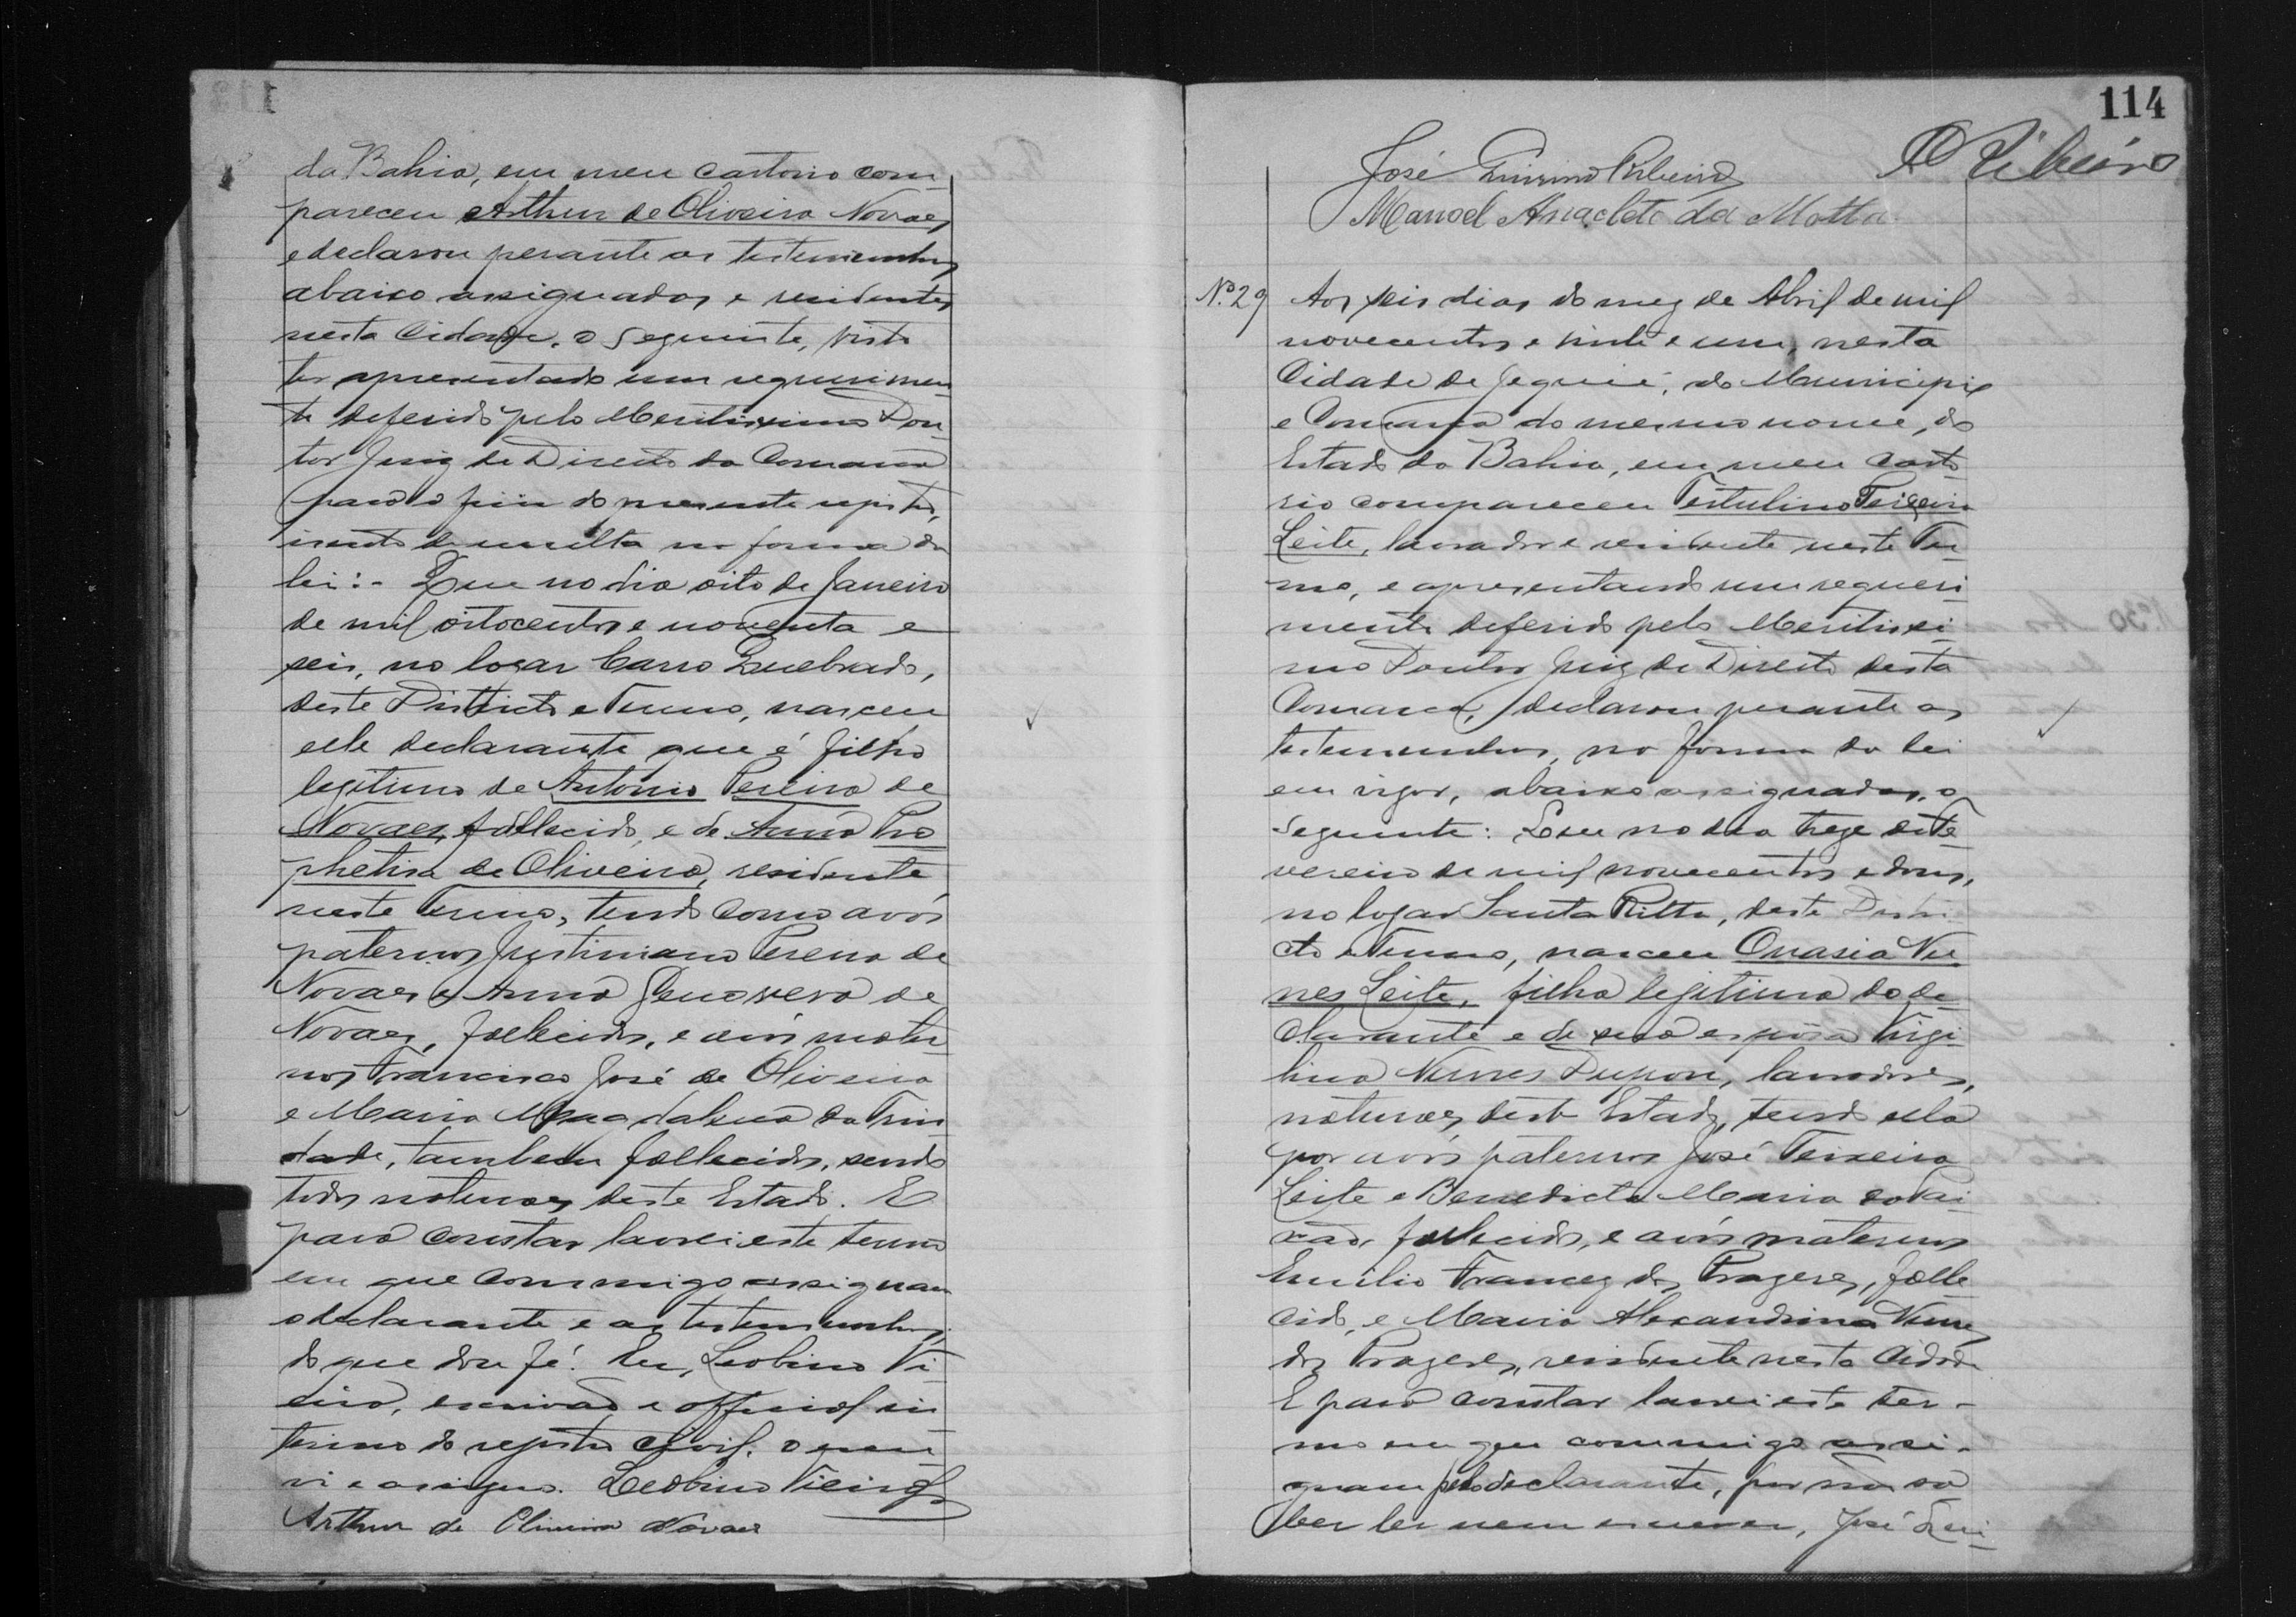 da Bahia, em meu cartorio com-
pareceu Arthur de Oliveira Novaes,
e declarou perante as testemunhas
abaixo assignadas e residentes
nesta Cidade, o seguinte, visto
ter apresentado um requerimen-
to deferido pelo Meritissimo Dou-
tor Juiz de Direito da Comarca
para o fim do presente registro,
isento de multa na forma da
lei:- Que no dia oito de Janeiro
de mil oitocentos e noventa e
seis, no logar Carro Quebrado,
deste Districto e Termo, nasceu
elle declarante que é filho
legitimo de Antonio Pereira de
Novaes, fallecido, e de Anna Pro-
phetisa de Oliveira, residente
neste Termo, tendo como avós
paternos Justiniano Pereira de
Novaes e Anna Genoveva de
Novaes, fallecidos, e avós mater-
nos Francisco José de Oliveira
e Maria Magdalena da Trin-
dade, tambem fallecidos, sendo
todos naturaes deste Estado. E
para constar lavrei este termo
em que commigo assignam
o declarante e as testemunhas,
do que dou fé. Eu, Leobino Vi-
eira, escrivão e official in-
terino do registro civil, o escre-
vi e assigno. Leobino Vieira
Arthur de Oliveira Novaes
114
José Quirino Ribeiro
Ribeiro
Manoel Anacleto da Motta
Nº 29 Aos seis dias do mez de Abril de mil
novecentos e vinte e um, nesta
Cidade de Jequié, do Municipio
e Comarca do mesmo nome, do
Estado da Bahia, em meu carto-
rio compareceu Tertulino Teixeira
Leite, lavrador e residente neste Ter-
mo, e apresentando um requeri-
mento deferido pelo Meritissi-
mo Doutor Juiz de Direito desta
Comarca, declarou perante as
testemunhas, na forma da lei
em vigor, abaixo assignadas, o
seguinte: Que no dia treze de Fe-
vereiro de mil novecentos e dous,
no logar Santa Ritta, deste Distri-
cto e Termo, nasceu Onasia Nu-
nes Leite, filha legitima do de-
clarante e de sua esposa Virgi-
lina Nunes Dupon, lavradores,
naturaes deste Estado, tendo ella
por avós paternos José Teixeira
Leite e Benedicta Maria da
fallecidos, e avós maternos
Emilio Francez dos Prazeres, falle-
cido, e Maria Alexandrina Nunes
dos Prazeres, residente nesta Cidade
E para constar lavrei este ter-
mo em que commigo assi-
gnam pelo declarante, por não sa-
ber ler nem escrever, José Qui-